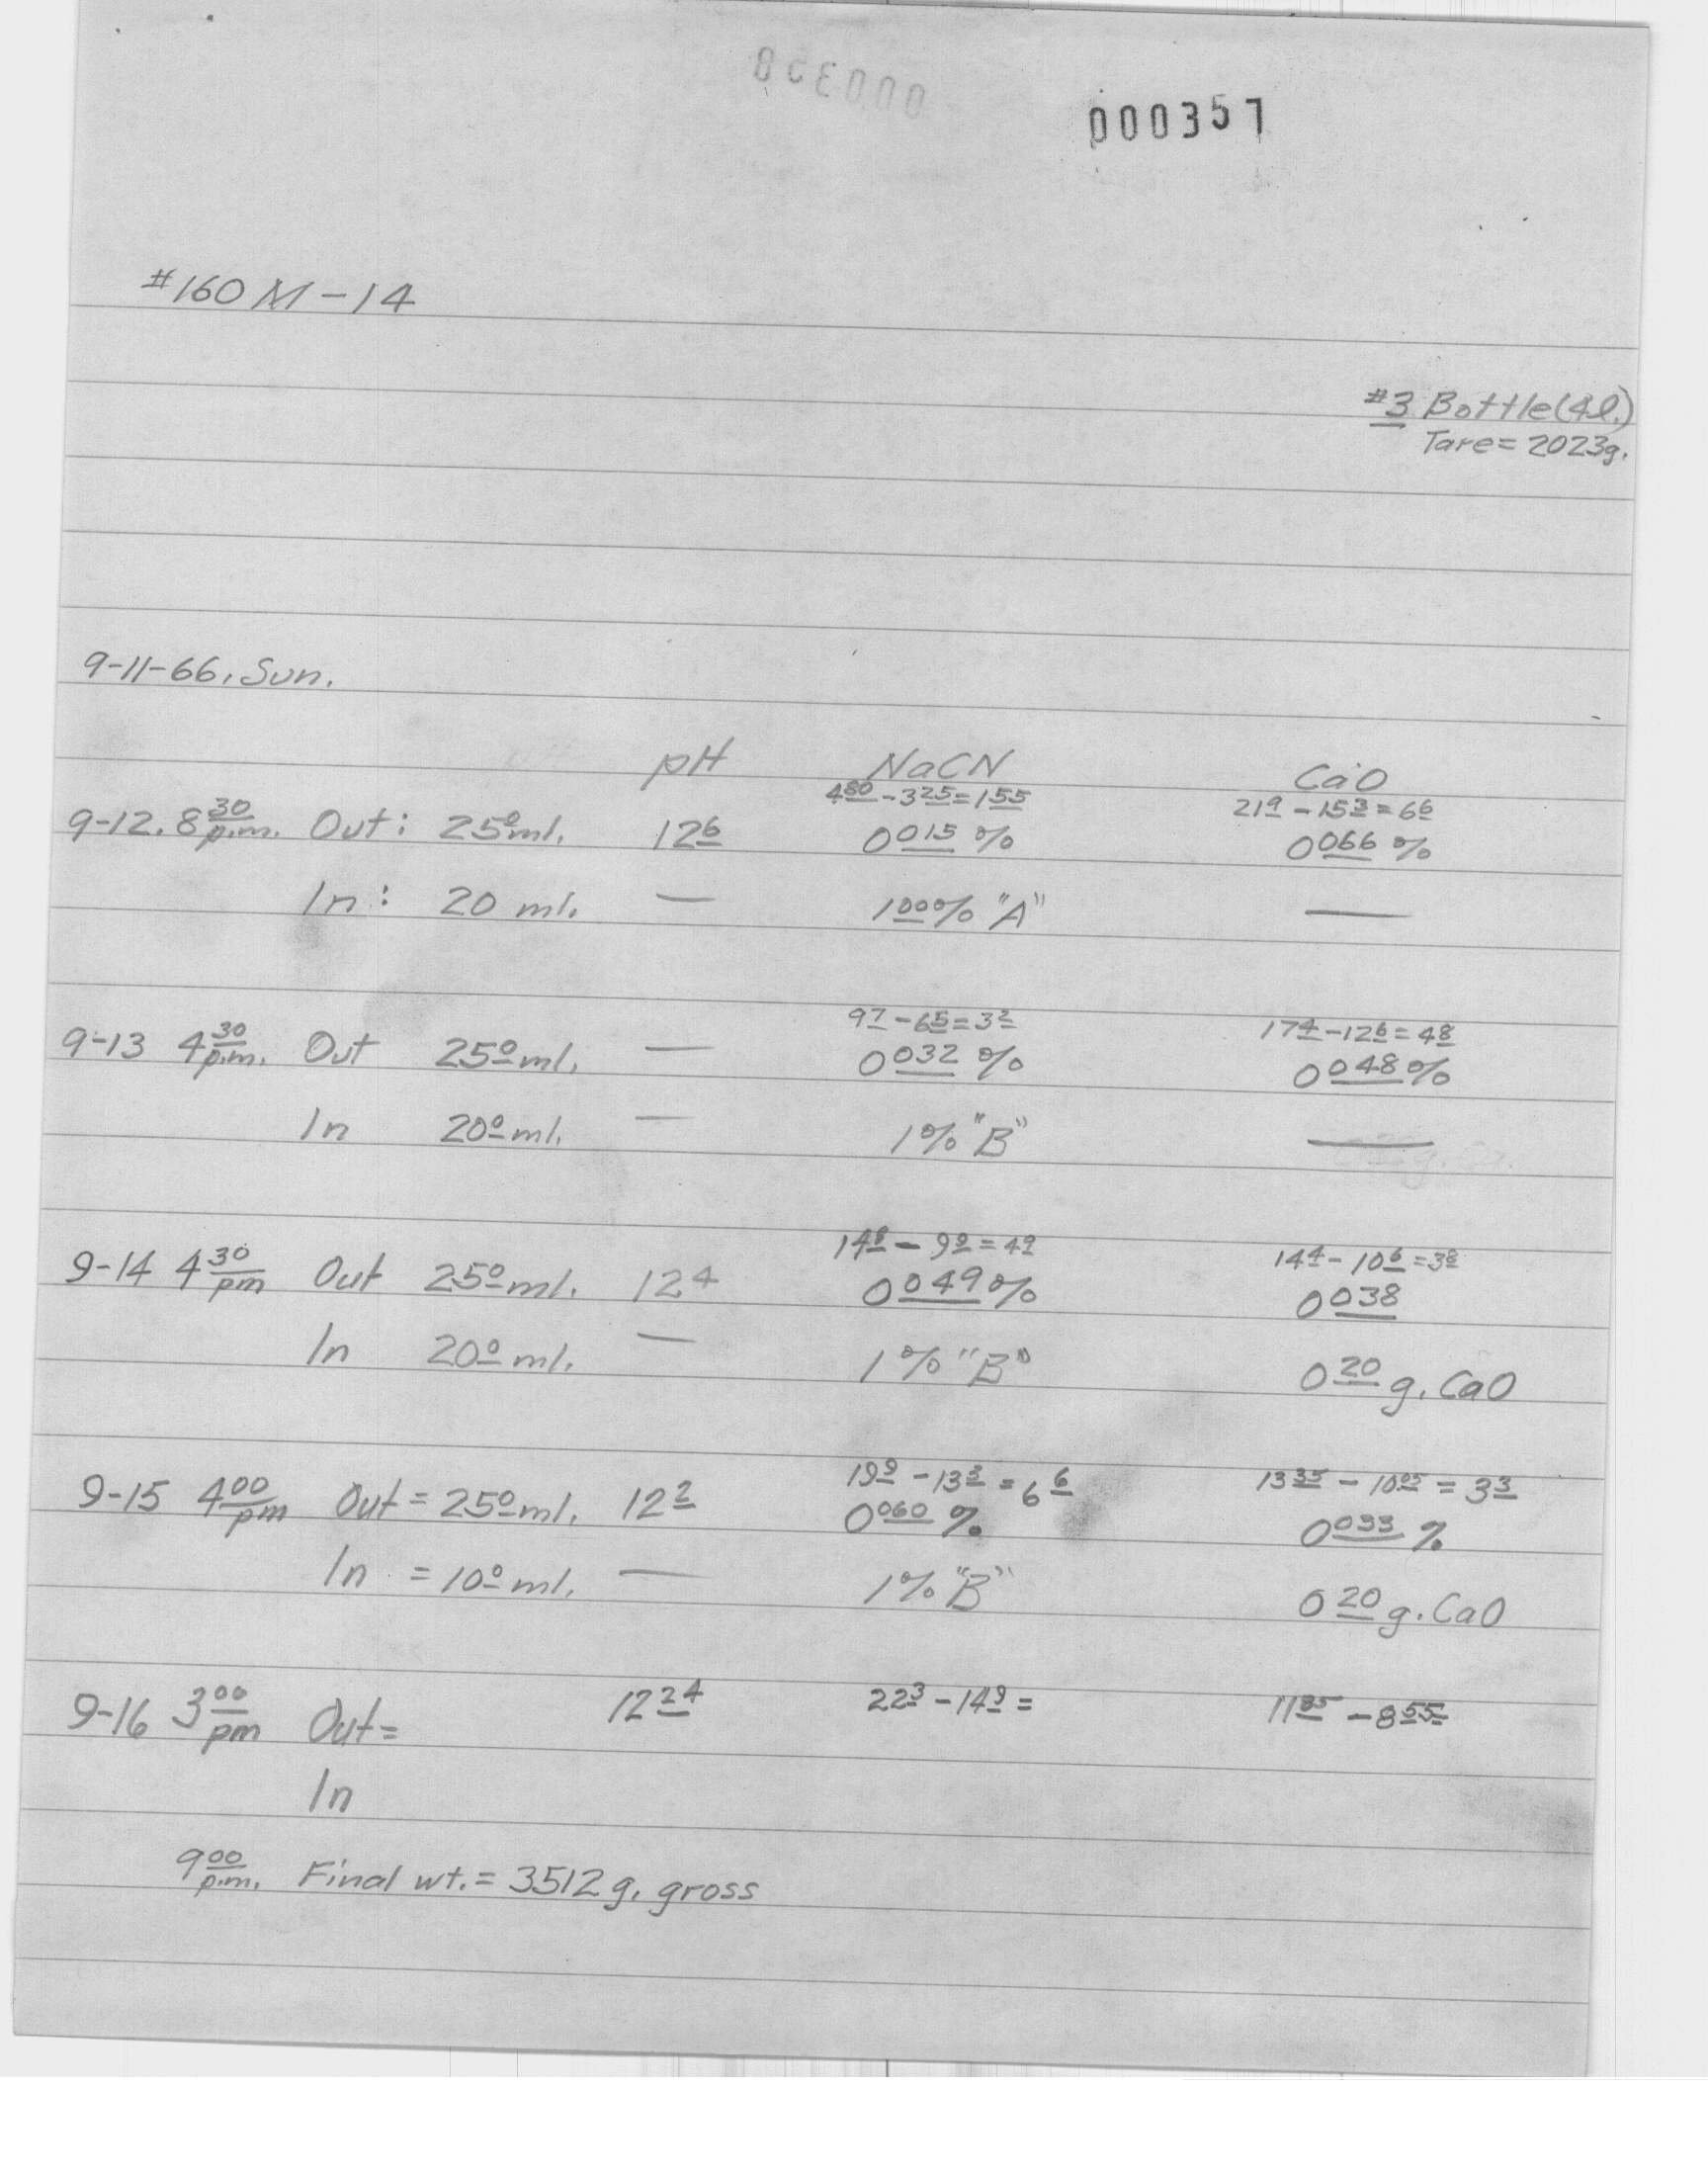 000358
000357
#160 M-14
#3 Bottle (4l.)
Tare = 2023g.
9-11-66, Sun.
pH NaCN CaO
4 80 - 3 25 = 1 55 21 9 - 15 3 = 6 6
9-12. 8 30 p.m. Out: 25 0 ml. 12 6 0 015 % 0 066 %
In: 20 ml. — 1 00 % "A" —
9 7 - 6 5 = 3 2 17 4 - 12 6 = 4 8
9-13 4 30 p.m. Out 25 0 ml. — 0 032 % 0 048 %
In 20 0 ml. — 1% "B" —
14 8 - 9 9 = 4 9 14 4 - 10 6 = 3 8
9-14 4 30 pm Out 25 0 ml. 12 4 0 049 % 0 038
In 20 0 ml. — 1% "B" 0 20 g. CaO
19 9 - 13 3 = 6 6 13 35 - 10 05 = 3 3
9-15 4 00 pm Out = 25 0 ml. 12 2 0 060 % 0 033 %
In = 10 0 ml. — 1% "B" 0 20 g. CaO
9-16 3 00 pm Out = 12 24 22 3 - 14 9 = 11 85 - 8 55 =
In
9 00 p.m. Final wt. = 3512 g. gross